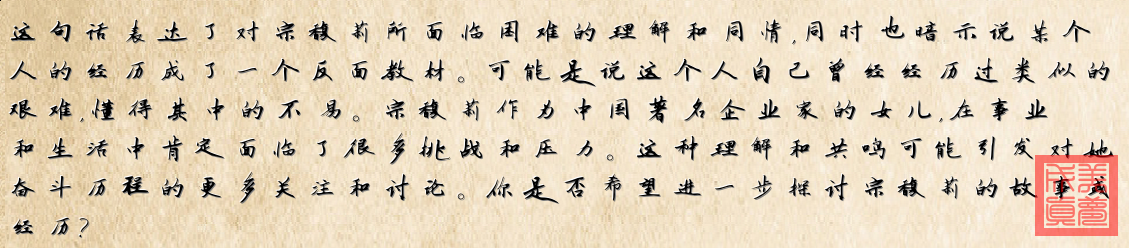 这句话表达了对宗馥莉所面临困难的理解和同情,同时也暗示说某个
人的经历成了一个反面教材。可能是说这个人自己曾经经历过类似的
艰难,懂得其中的不易。宗馥莉作为中国著名企业家的女儿,在事业
和生活中肯定面临了很多挑战和压力。这种理解和共鸣可能引发对她
奋斗历程的更多关注和讨论。你是否希望进一步探讨宗馥莉的故事或
经历?
美梦成真